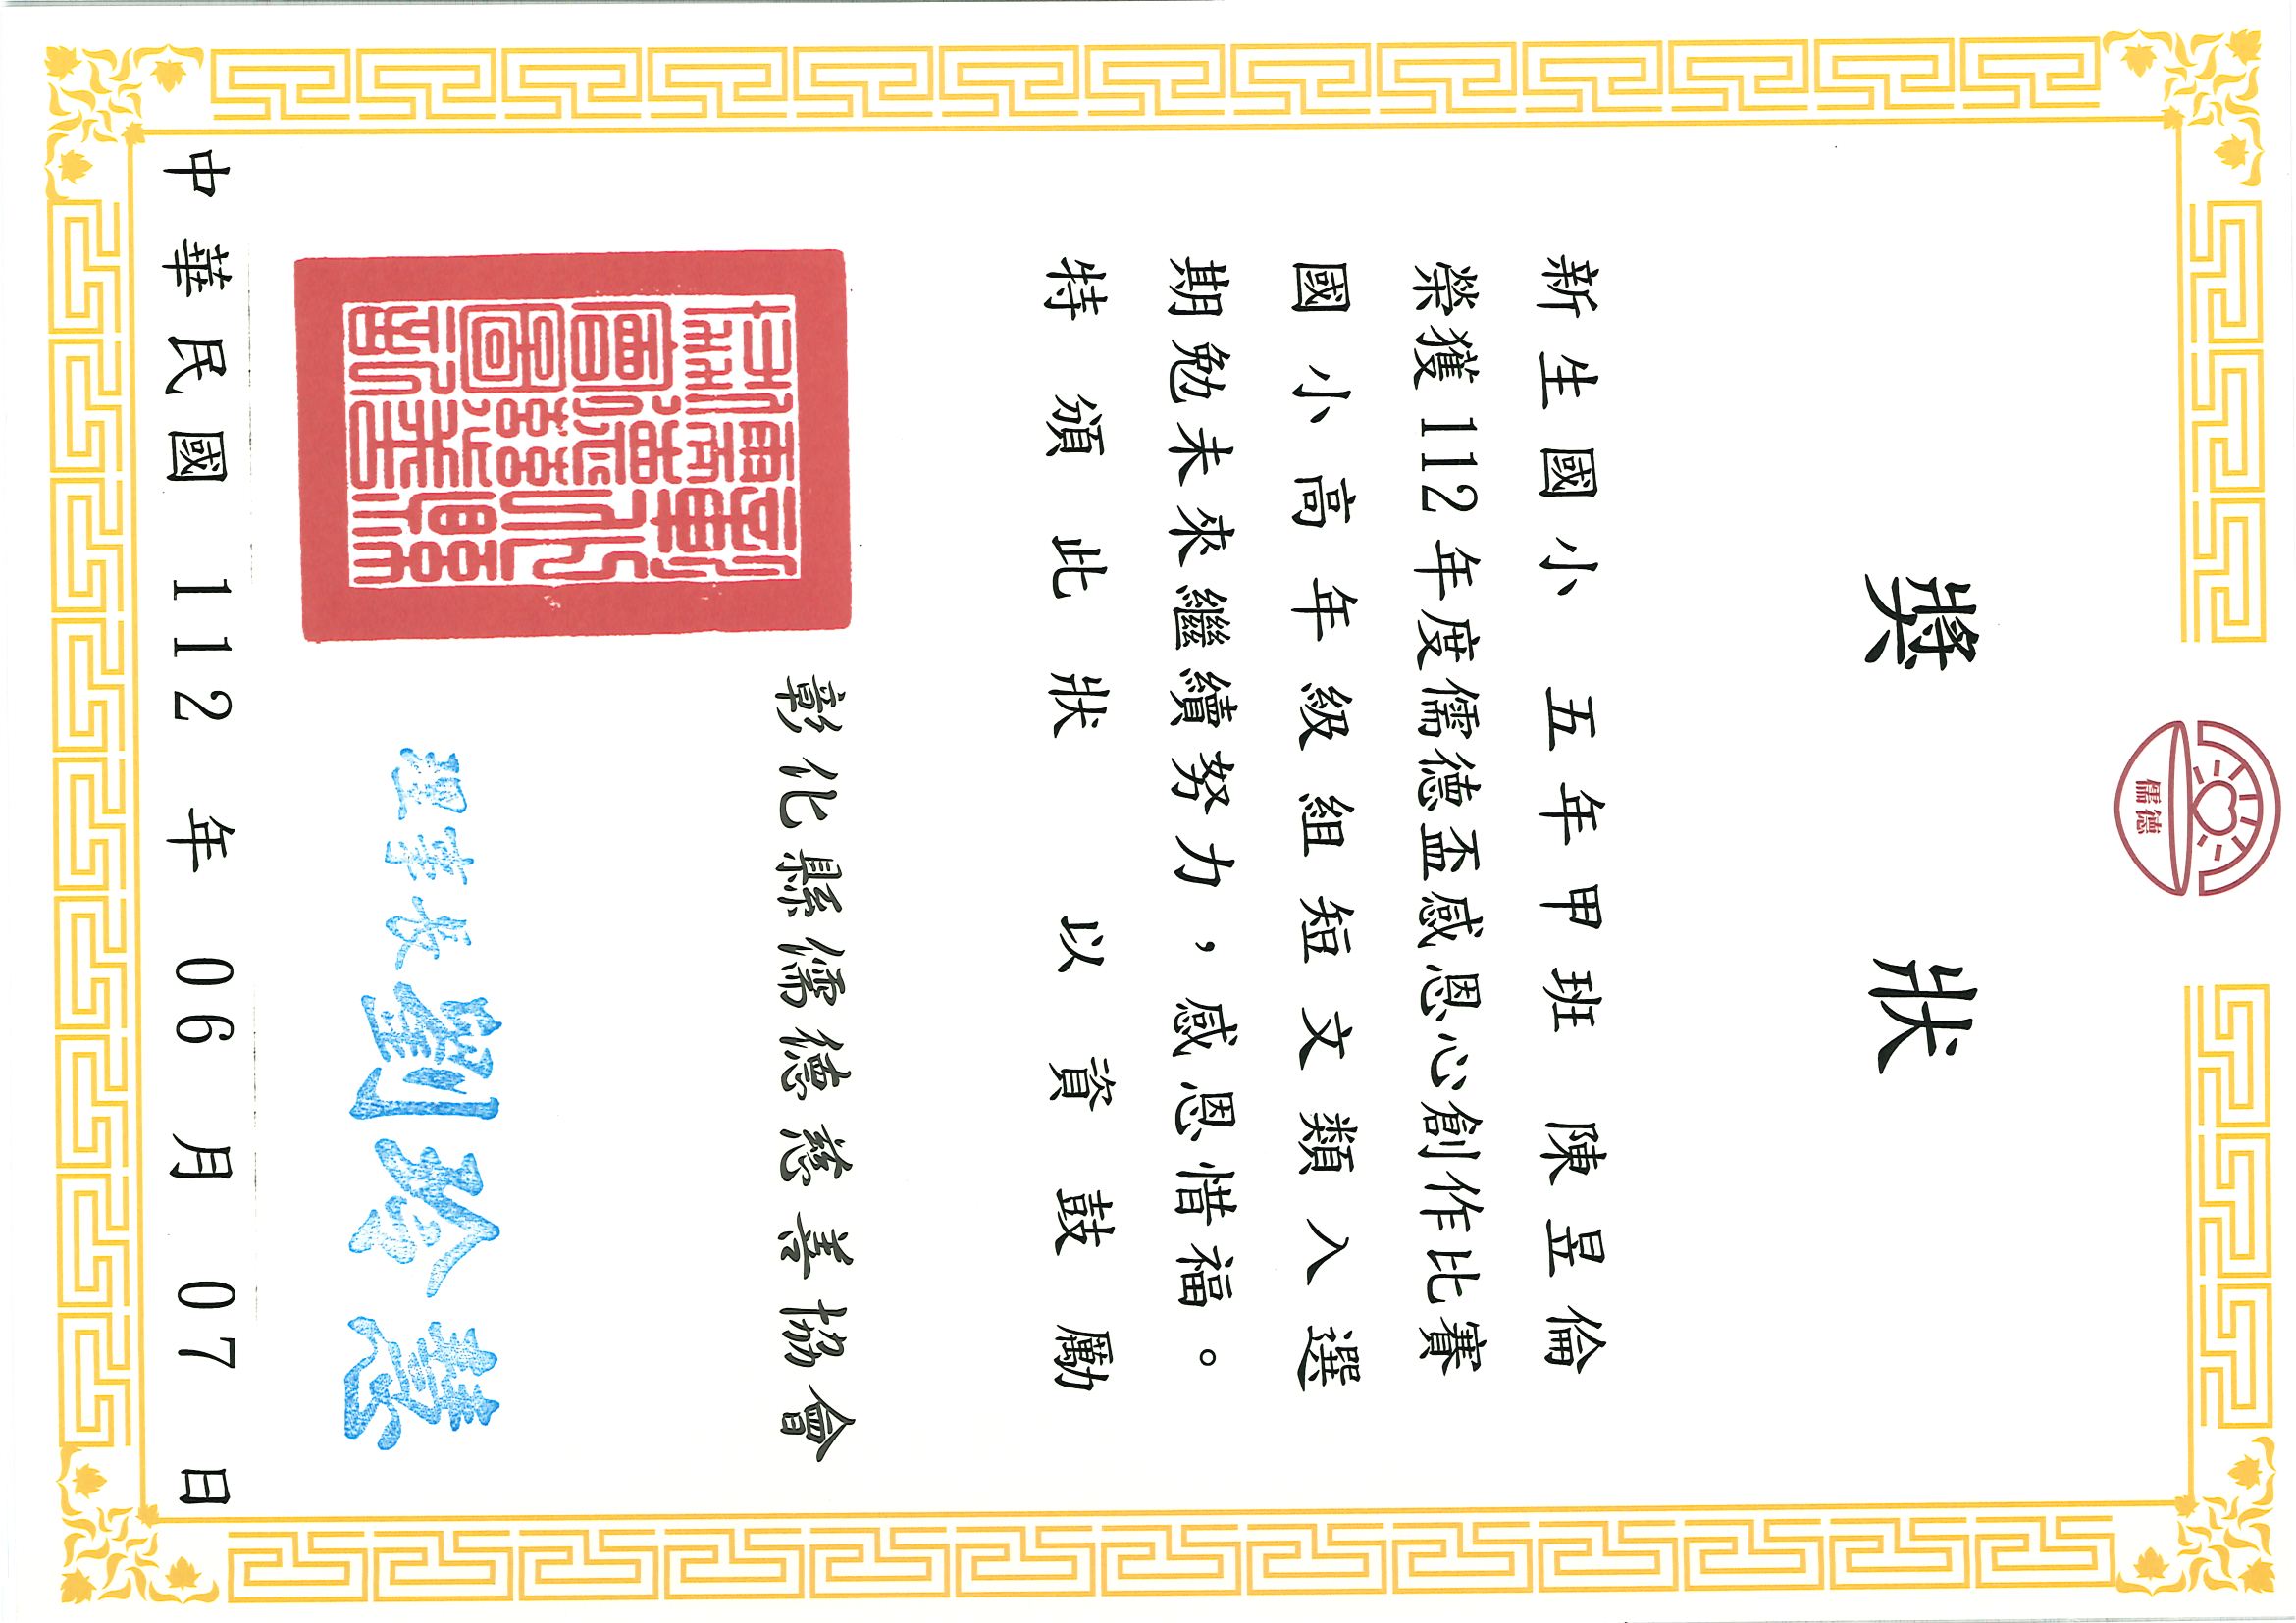 儒德
獎狀
新生國小 五年甲班 陳昱倫
榮獲112年度儒德盃感恩心創作比賽
國小高年級組短文類入選
期勉未來繼續努力，感恩惜福。
特頒此狀 以資鼓勵
彰化縣儒德慈善協會
理事長劉玲慧
中華民國 112 年 06 月 07 日